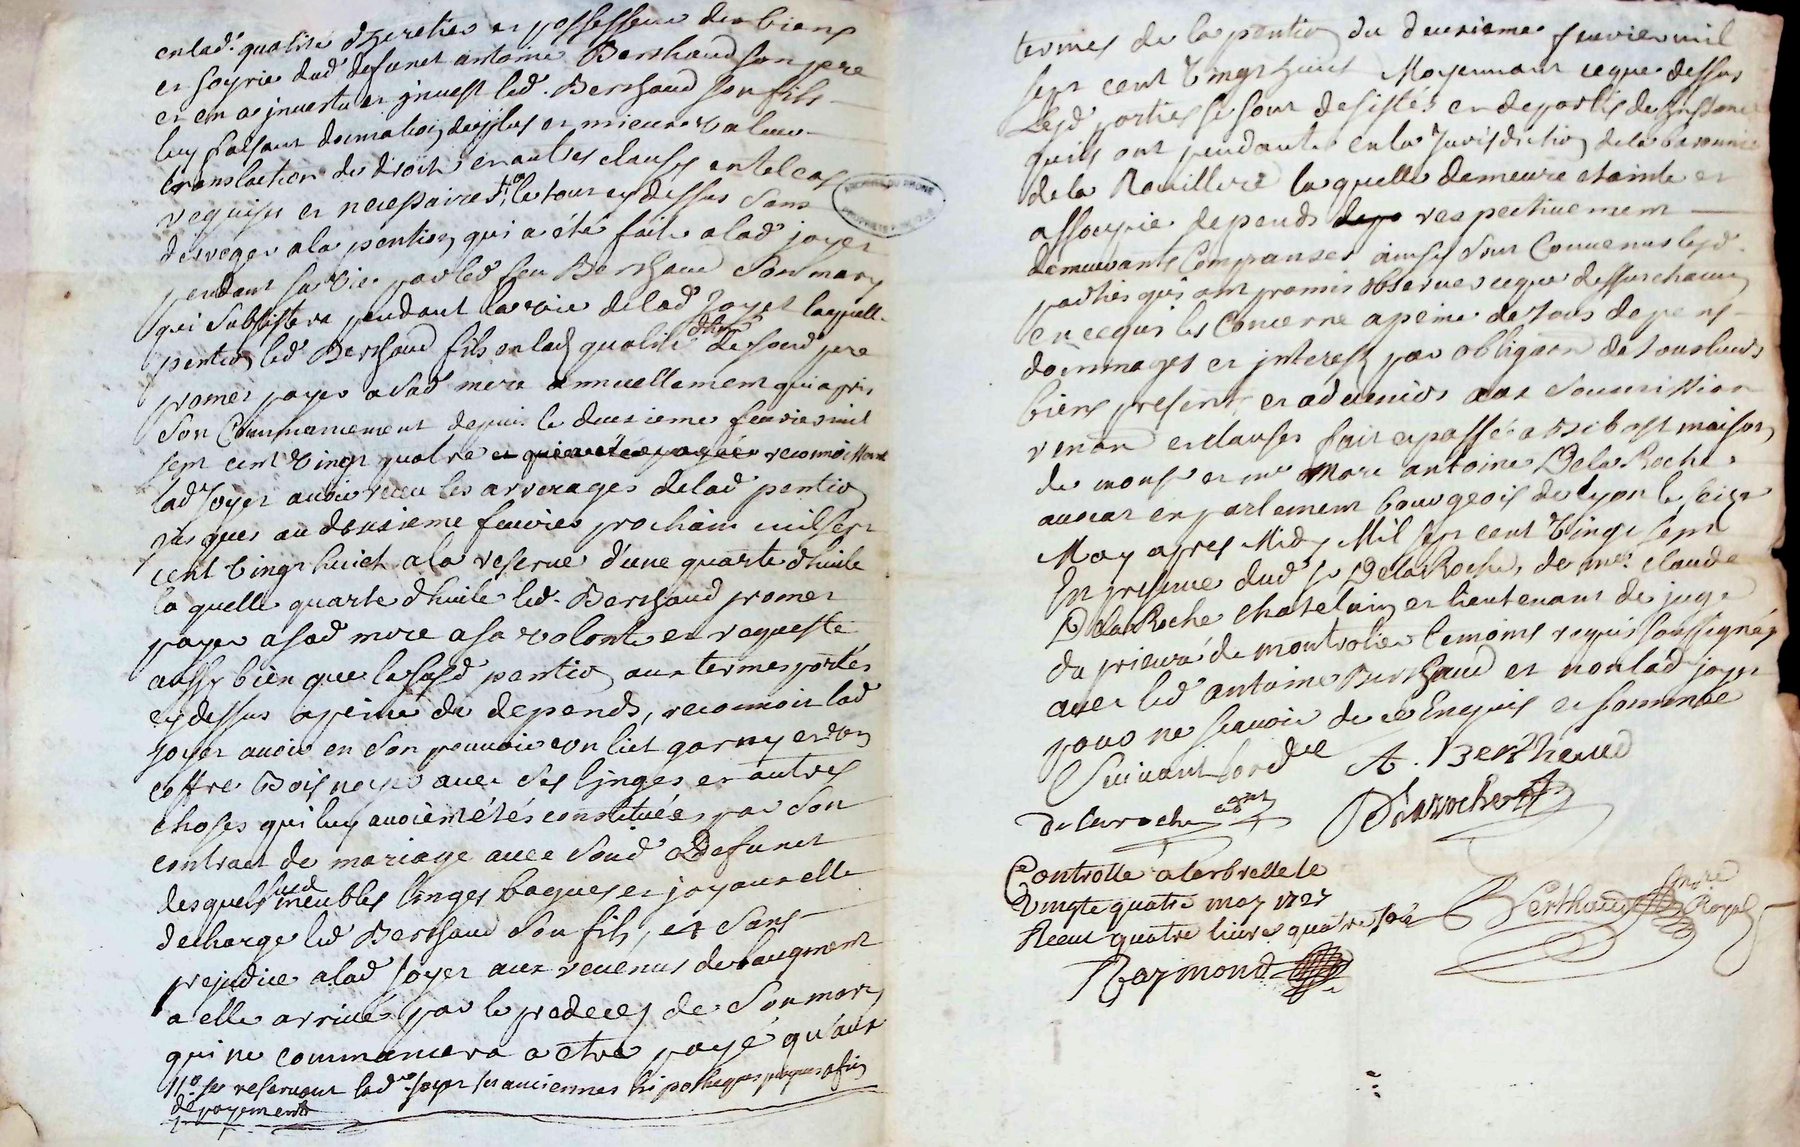 enlad. qualité d'heretier et possesseur des biens
et hoyrie dud. defunct antoine Berthaud son pere
et en a jnvestu et jnvest led. Berthaud son fils
luy faisant donnation des plus et mieux value
translaction de droit et autres clauses en tel cas
requises et necessaires le tout cy dessus sans
desroger a la pention qui a été faite a lad. joyet
pendant sa vie par led. feu Berthaud son mary
qui subsistera pendant la vie de lad. Joyet laquelle
pention led. Berthaud fils en lad. qualité d'her. de soud. pere
promet payer a sad. mere annuellement qui a pris
son Commancement depuis le deuxieme fevrier mil
sept cent vingt quatre reconnoissant
lad. Joyet avoir receu les arrerages de lad. pention
jusques au deuxieme fevrier prochain mil sept
cent vingt huict a la reserve d'une quarte d'huile
laquelle quarte d'huile led. Berthaud promet
payer a sad. mere a sa volonté et requeste
aussy bien que la susd. pention aux termes portés
cy dessus a peine de depends, reconnoit lad.
joyet avoir en son pouvoir son lict garny et son
coffre Bois noyer avec ses linges et autres
choses qui luy avoient étés constituées par son
contract de mariage avec soud. Defunct
desquels susd. meubles linges bagues et joyaux elle
decharge led. Berthaud son fils, et sans
prejudice a lad. joyet aux revenus de laugment
a elle arrivé par le predeces de son mary
qui ne commancera a etre payé qu'aux
se reservant lad. Joyet ses anciennes hipotheques jusques a fin
de payement
termes de la pention du deuxieme fevrier mil
sept cent vingt huict Moyennant ce que dessus
Lesd. parties se sont desistés et departis de l'instance
quils ont pendante en la Jurisdiction de la baronnie
de la Rouilliere laquelle demeure etainte et
assoupie depends respectivement
demeurants Compansés ainsy sont Convenus lesd.
parties qui ont promis observer ce que dessus chacun
en ce qui les Concerne a peine de tous depens
dommages et jnterest par obligaon de tous leurs
biens presents et advenirs aux soumission
renon et clauses fait et passé a Bibost maison
de mons. et me Marc antoine DelaRoche
avocat en parlement bourgeois de Lyon le
May apres Midy Mil sept cent vingt sept
En presence dud. sr DelaRoche, de me. claude
DelaRoche chatelain et lieutenant de juge
du prieuré de montrotier temoins requis soussignés
avec led. antoine Berthaud et non lad. joyet
pour ne scavoir de ce Enquis et sommée
Suivant lord.ce A. Berthaud
de laroche Delaroche
Controllé a larbrelle le
vingte quatre may 1727
Receu quatre livres quatre sols
Berthaud nore Royal
Raymond